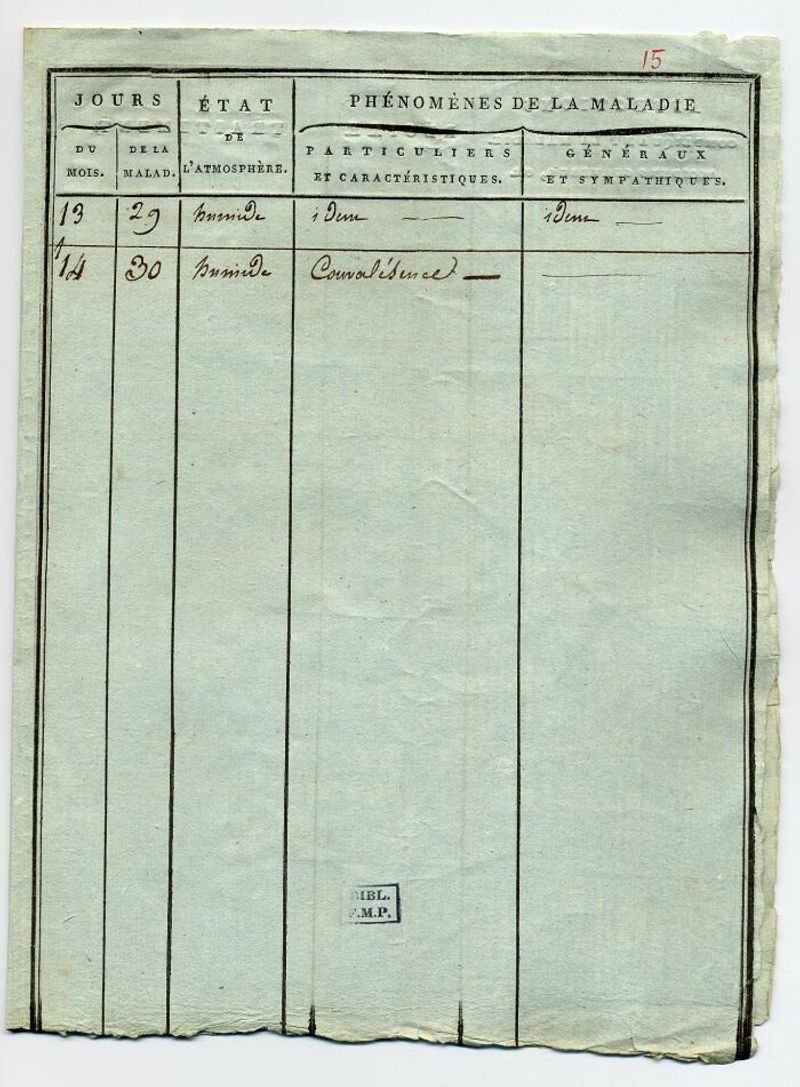 15
JOURS
DU
MOIS.
DE LA
MALAD.
ÉTAT
DE
L'ATMOSPHÈRE.
PHÉNOMÈNES DE LA MALADIE
PARTICULIERS
ET CARACTÉRISTIQUES.
GÉNÉRAUX
ET SYMPATHIQUES.
13 29 humide idem — idem —
14 30 humide Convalésence — —
BIBL.
F.M.P.